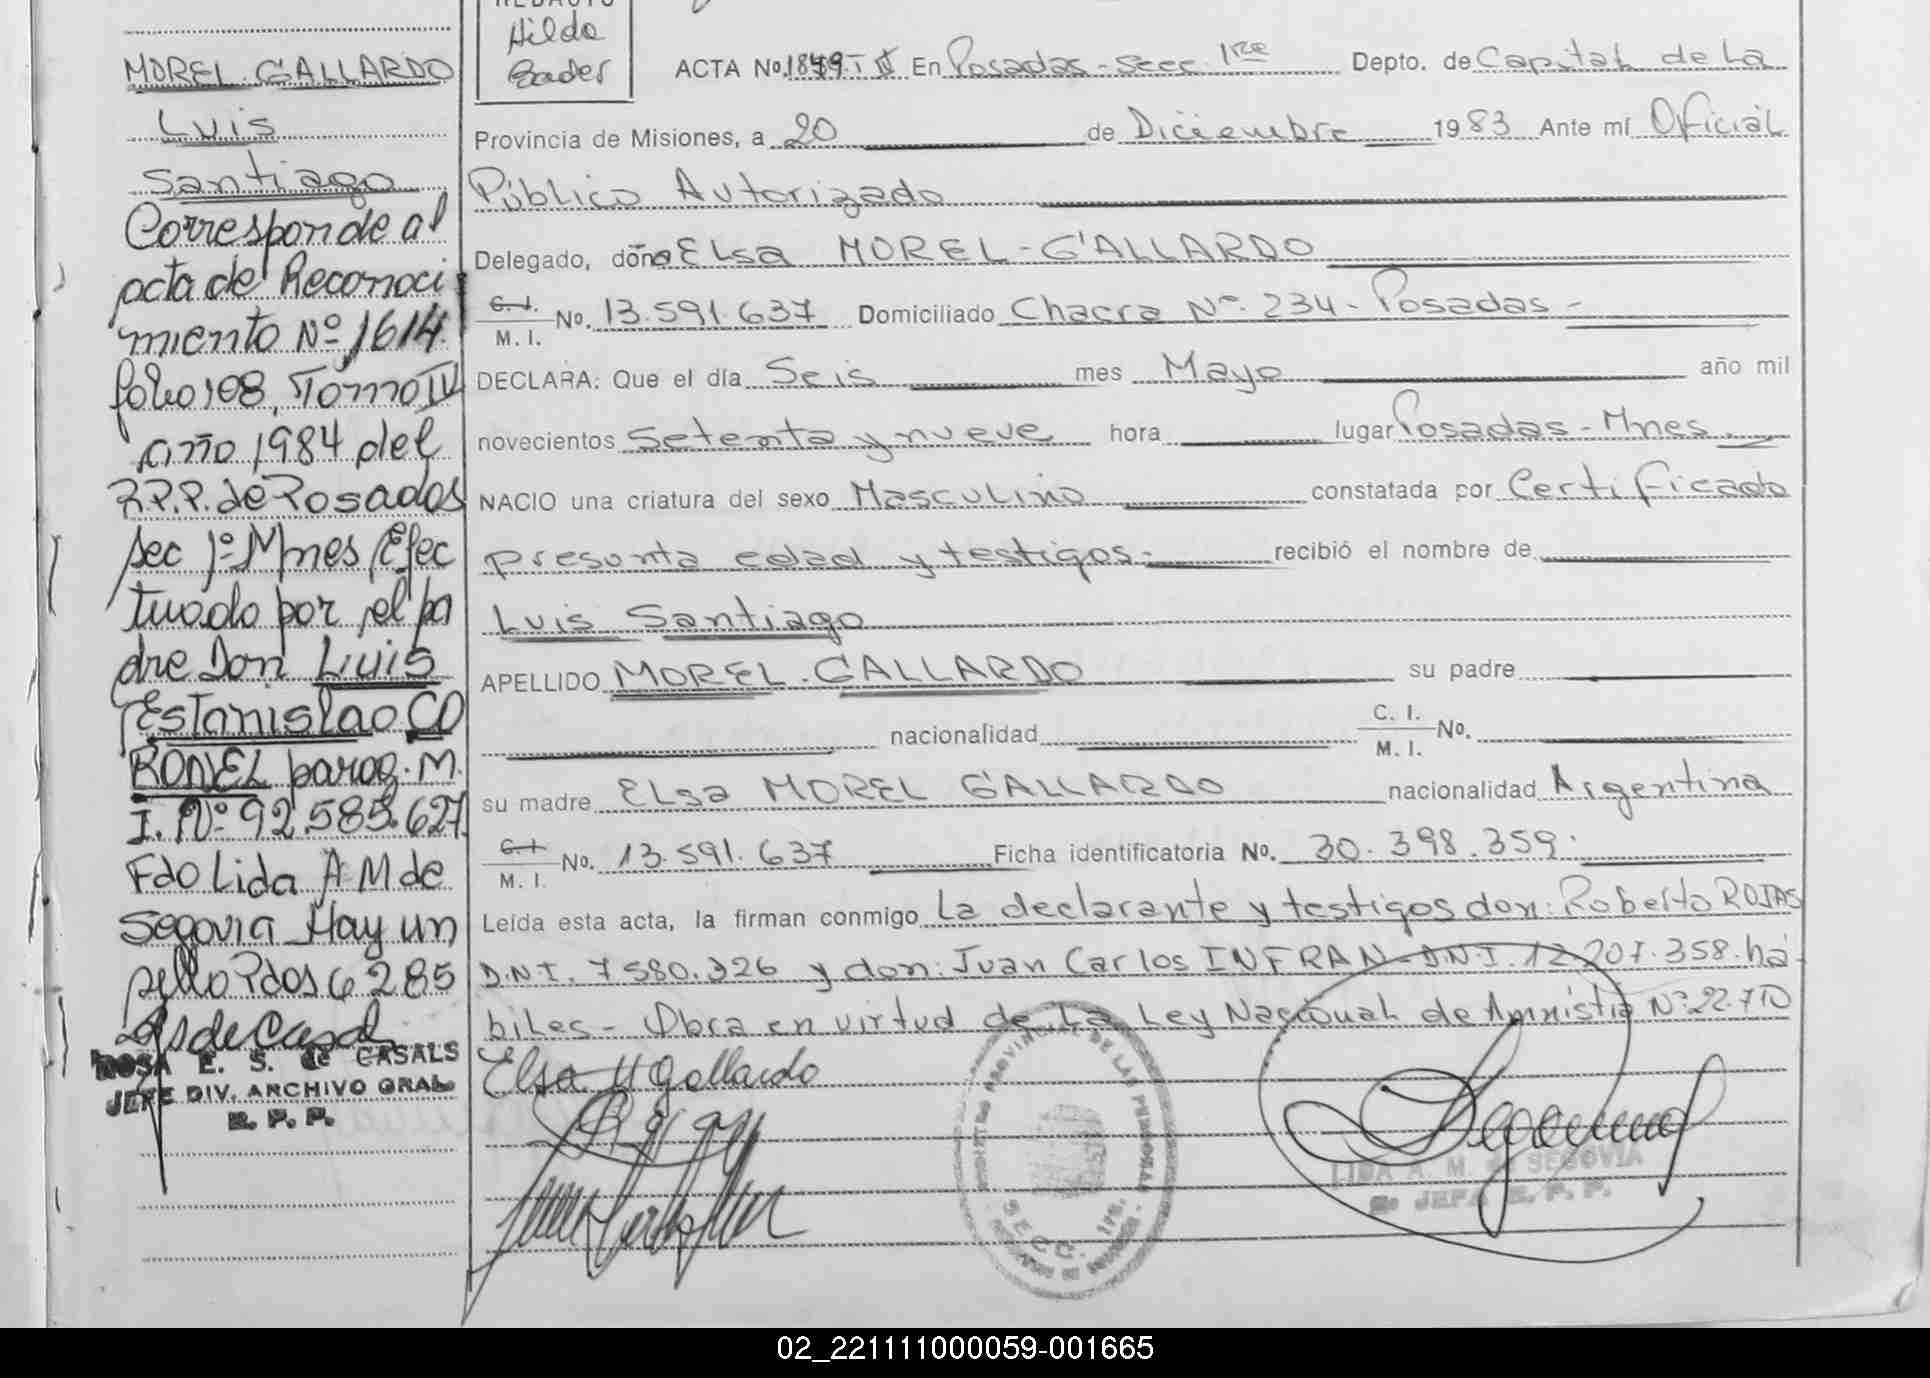 REDACTO
Hilda
Bader
MOREL GALLARDO
Luis
Santiago
Corresponde al
acta de Reconoci
miento Nº 1614
folio 108, Tomo IV
año 1984 del
R.P.P. de Posadas
sec 1º Mnes Efec
tuado por el pa
dre Don Luis
Estanislao CO
RONEL parag. M.
I. Nº 92.585.627
Fdo Lida A M de
Segovia Hay un
sello Pdas 6 2 85
ROSA E. S. de CASALS
JEFE DIV. ARCHIVO GRAL.
R. P. P.
ACTA No. En Posadas - Secc. 1ra Depto. de Capital de La
Provincia de Misiones, a 20 de Diciembre 1983 Ante mí Oficial
Público Autorizado
Delegado, doña Elsa MOREL - GALLARDO
C. I. M. I. No. 13.591.637 Domiciliado Chacra Nº. 234 - Posadas -
DECLARA: Que el día Seis mes Mayo año mil
novecientos setenta y nueve hora lugar Posadas - Mnes
NACIO una criatura del sexo Masculino constatada por Certificado
presunta edad y testigos - recibió el nombre de
Luis Santiago
APELLIDO MOREL - GALLARDO su padre
nacionalidad C. I. M. I. No.
su madre Elsa MOREL GALLARDO nacionalidad Argentina
C. I. M. I. No. 13.591.637 Ficha identificatoria No. 30.398.359.
Leída esta acta, la firman conmigo La declarante y testigos don: Roberto ROJAS
D.N.I. 7580.326 y don: Juan Carlos INFRAN - D.N.I. 12.207.358. há
biles - Obra en virtud de La Ley Nacional de Amnistía Nº 22.710
Elsa M Gallardo
SECC. 1ra.
LIDA A. M. de SEGOVIA
JEFA R. P. P.
02_221111000059-001665